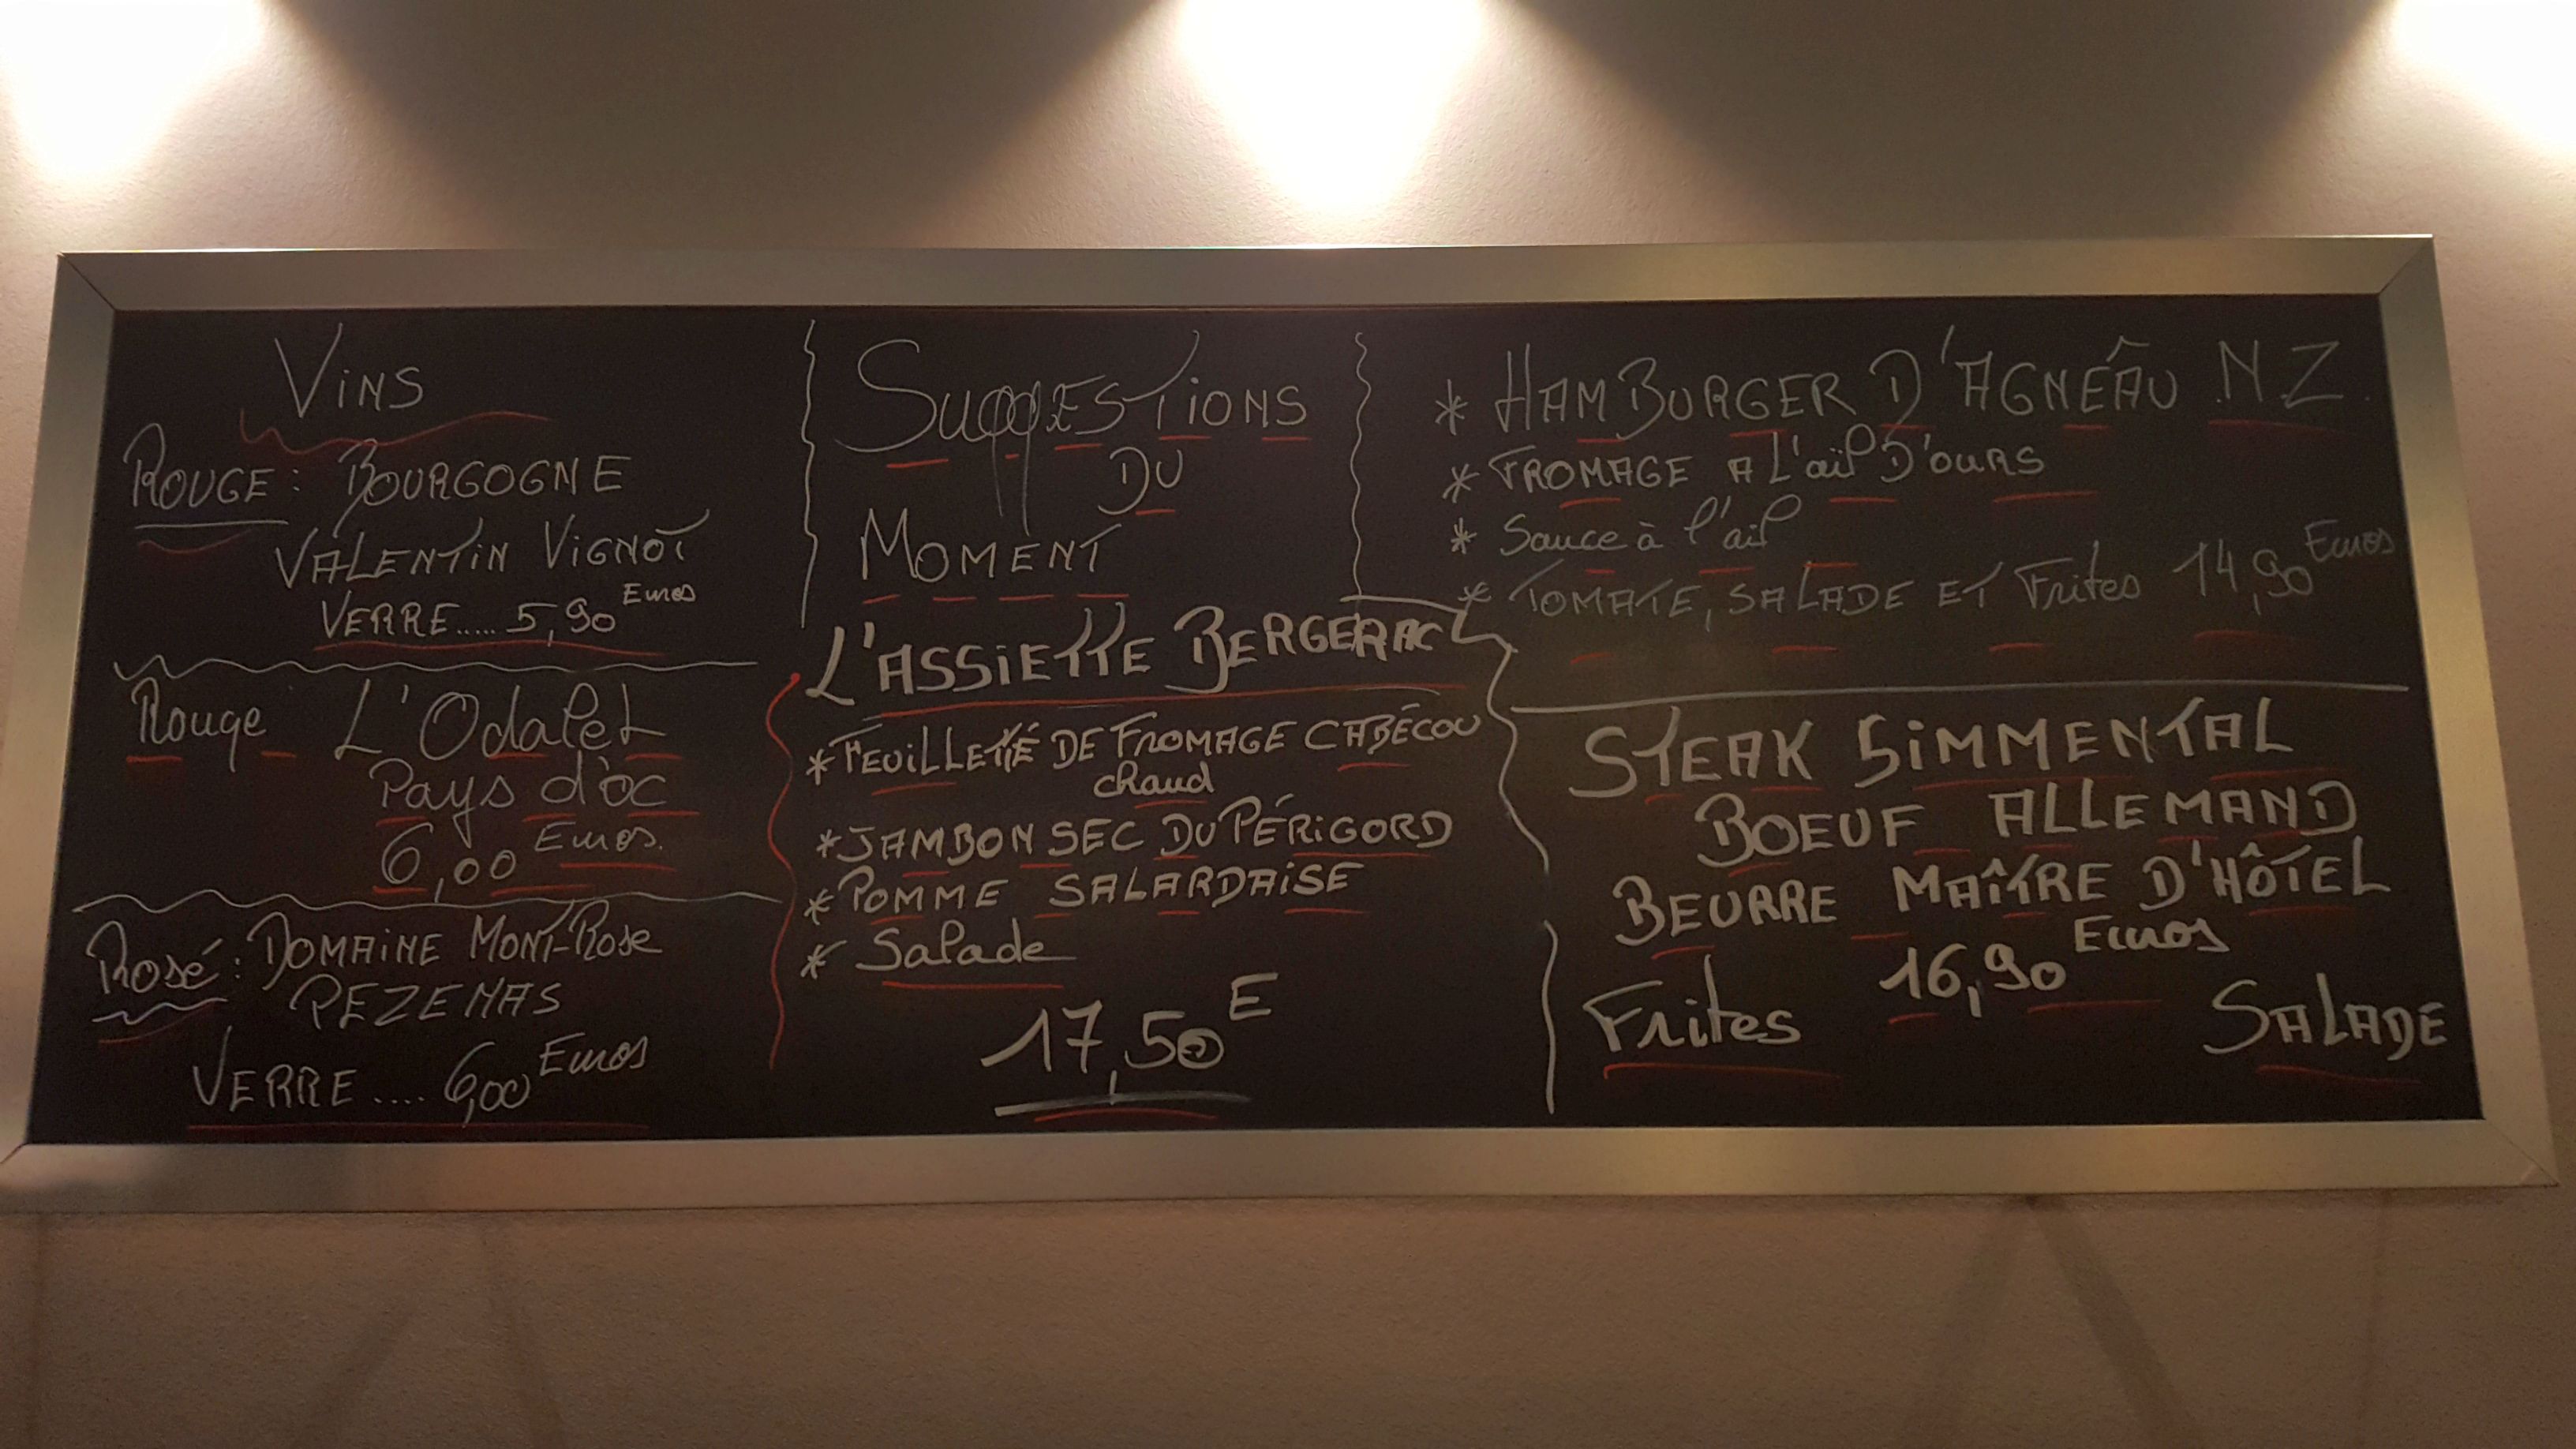 Vins
ROUGE: BOURGOGNE
VALENTIN VIGNOT
VERRE..... 5,90 Euros
Rouge - L'Odalet
Pays d'oc
6,00 Euros.
Rosé: DOMAINE MONT-Rose
PEZENAS
VERRE.... 6,00 Euros
SuggESTIONS
DU
MOMENT
L'ASSIETTE BERGERAC
*FEUILLETÉ DE FROMAGE CABÉCOU
chaud
*JAMBON SEC DU PÉRIGORD
* POMME SALARDAISE
* Salade
17,50 E
* HAMBURGER D'AGNÉÂU NZ.
* FROMAGE A L'aïl D'OURS
* Sauce à l'ail
* TOMATE, SALADE ET Frites 14,90 Euros
STEAK SIMMENTAL
BOEUF ALLEMAND
BEURRE MAÎTRE D'HÔTEL
16,90 Euros
Frites SALADE